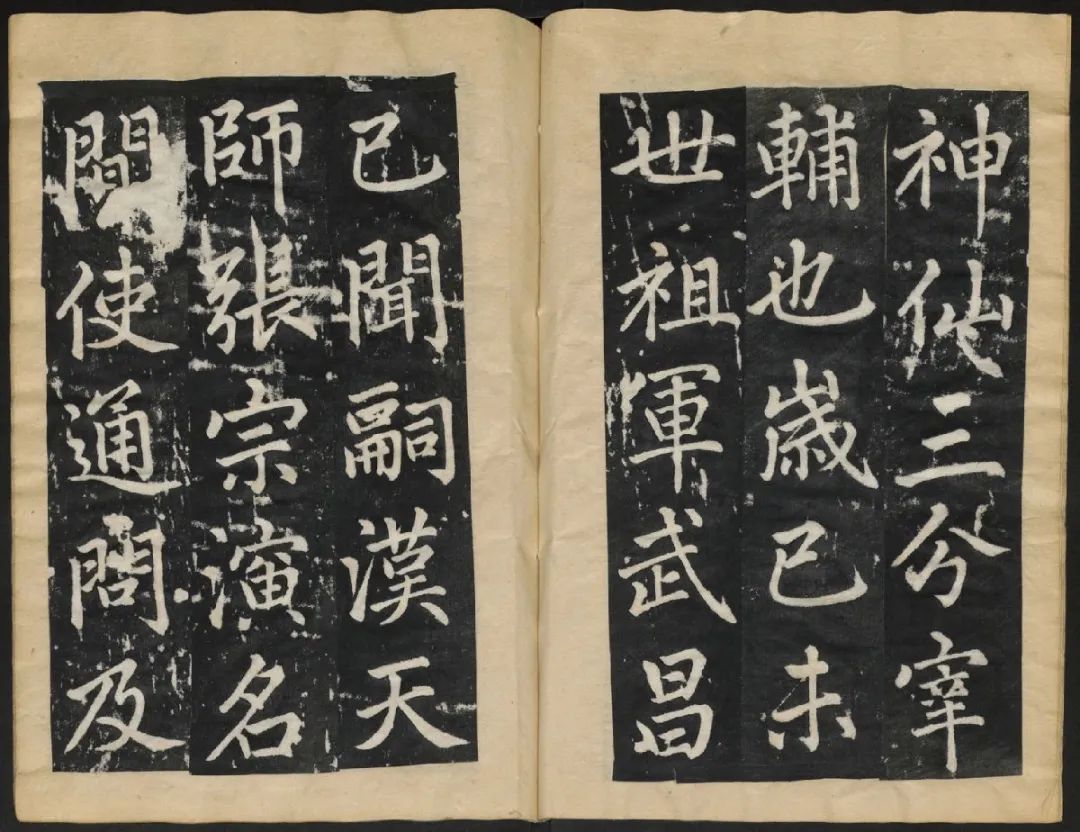 神仙三分宰
輔也歲己未
世祖軍武昌
已聞嗣漢天
師張宗演名
間使通問及